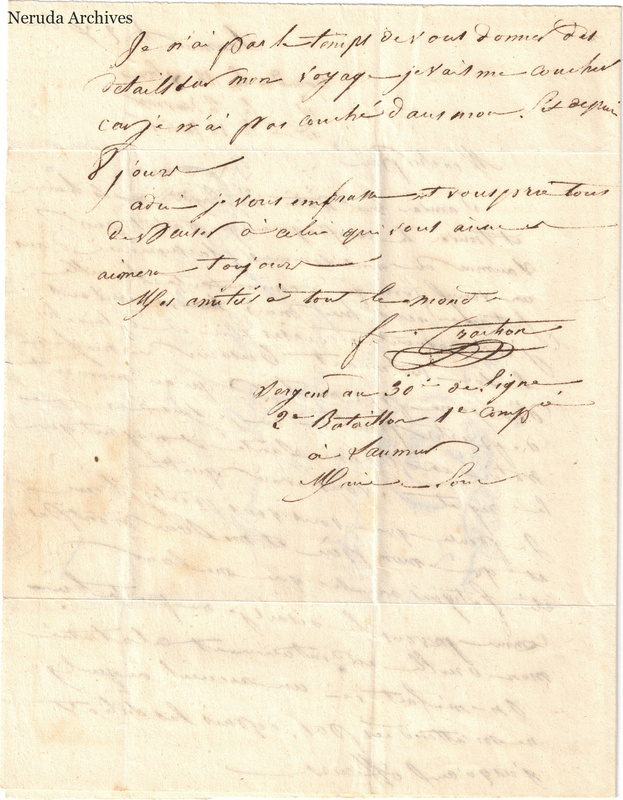 Neruda Archives
Je n'ai pas le temps de vous donner des
details sur mon voyage je vais me coucher
car je n'ai pas couché dans mon lit depuis
8 jours
adieu je vous embrasse et vous prie tous
de penser à celui qui vous aime et
aimera toujours
Mes amitiés à tout le monde
Sergent au 30e de ligne
2e Bataillon 1e Compie
à Saumur
Maine Loire